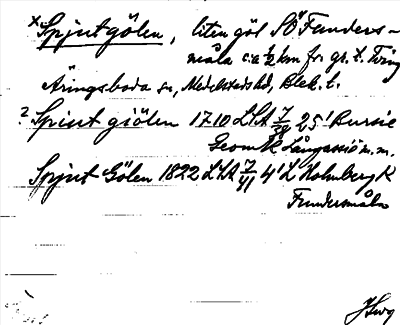 × Spjutgölen, liten göl SÖ Funders-
måla c:a 1/2 km fr. gr. t. Tving
Åringsboda sn, Medelstads hd, Blek. l.
? Spiut giölen 1710 LSA 7/38 25' Bursie
Geom K Långasjö m.m.
Spjut Gölen 1822 LSA 7/41 4' L Holmberg K
Fundersmåla